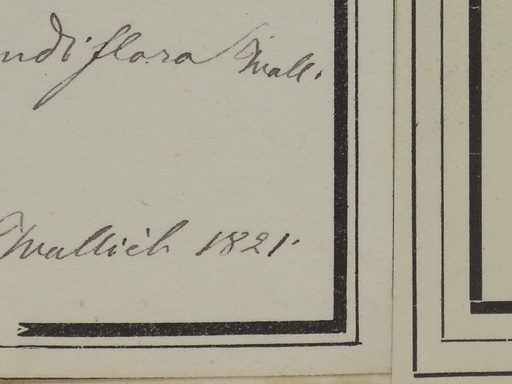 ndiflora Wall.
Wallich 1821.